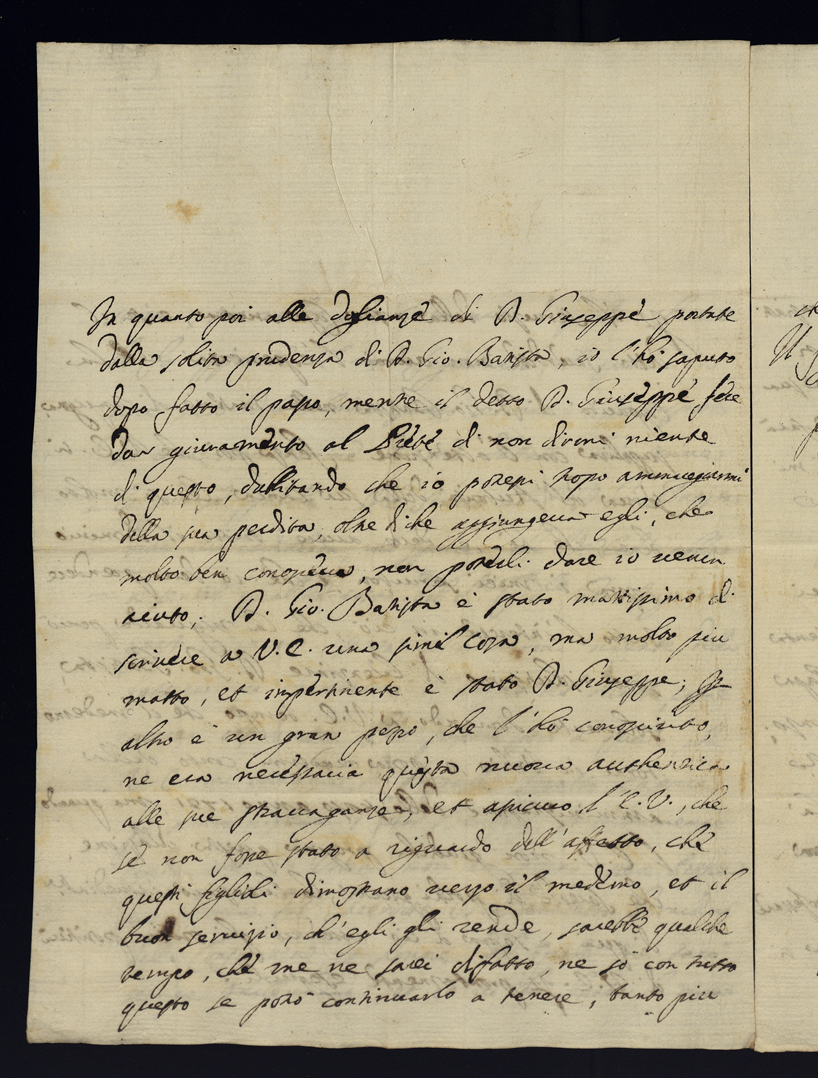 In quanto poi alle doglianze di D. Giuseppe portate
dalla solita prudenza di D. Gio. Batista, io l'hò saputo
dopo fatto il passo, mentre il detto D. Giuseppe fece
dar giuramento al di non dirmi niente
di questo, dubitando che io potessi troppo
della sua perdita, oltre di che aggiungeva egli, che
molto ben conosceva, non potergli dare io verun
aiuto; D. Gio. Batista è stato mattissimo di
scrivere a V.E. una simil cosa, ma molto più
matto, et impertinente è stato D. Giuseppe; per
altro è un gran pezzo, che l'hò conosciuto,
ne era necessaria questa nuova authentica
alle sue stravaganze, et assicuro l'E.V., che
se non fosse stato a riguardo dell'affetto, che
questi figlioli dimostrano verso il medemo, et il
buon servizio, ch'egli gli rende, sarebbe qualche
tempo, che me ne sarei disfatto, ne sò con tutto
questo se potrò continuarlo a tenere, tanto più